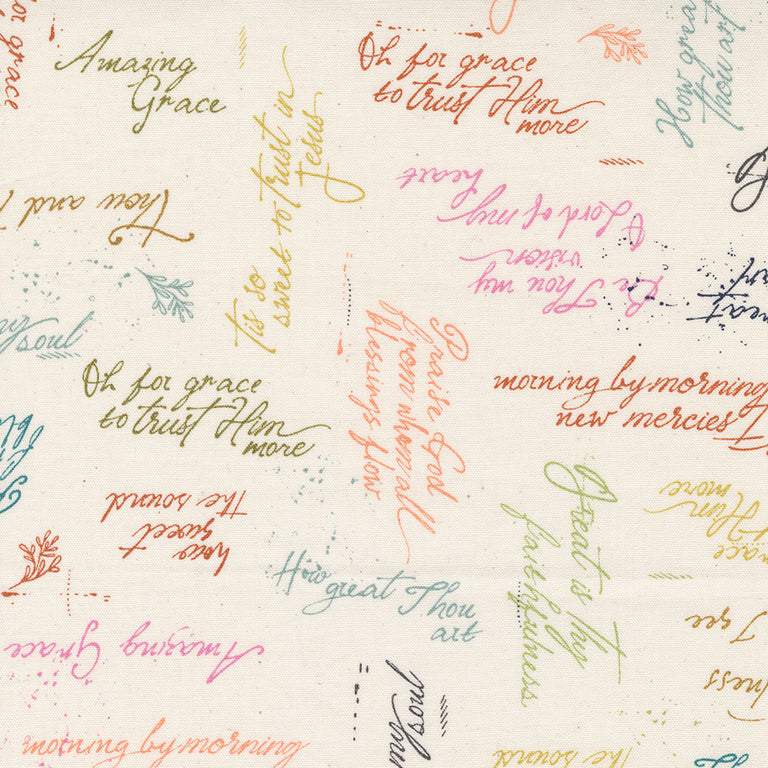 or grace
Amazing
Grace
Oh for grace
to trust Him
more
How great
Thou art
Tis so
sweet to trust in
Jesus
Thou and
Be Thou my
vision
O Lord of my
heart
soul
Oh for grace
to trust Him
more
Praise God
from whom all
blessings flow
morning by morning
new mercies
how
sweet
the sound
Great is Thy
faithfulness
Him
more
How
great Thou
art
I see
Amazing Grace
my soul
morning by morning
the sound